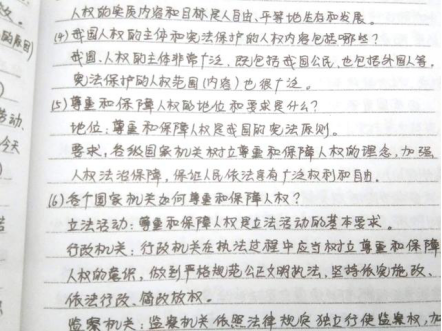 人权的实质内容和目标是人自由、平等地生存和发展。
(4)我国人权的主体和宪法保护的人权内容包括哪些?
我国,人权的主体非常广泛,既包括我国公民,也包括外国人等,
宪法保护的人权范围(内容)也很广泛。
(5)尊重和保障人权的地位和要求是什么?
地位:尊重和保障人权是我国的宪法原则。
要求,各级国家机关树立尊重和保障人权的理念,加强
人权法治保障,保证人民依法享有广泛权利和自由.
(6)各个国家机关如何尊重和保障人权?
立法活动:尊重和保障人权是立法活动的基本要求。
行政机关:行政机关在执法过程中应当树立尊重和保障
人权的意识,做到严格规范公正文明执法,坚持依宪施政、
依法行政、简政放权。
监察机关:监察机关依照法律规定独立行使监察权,加
劳动.
今天